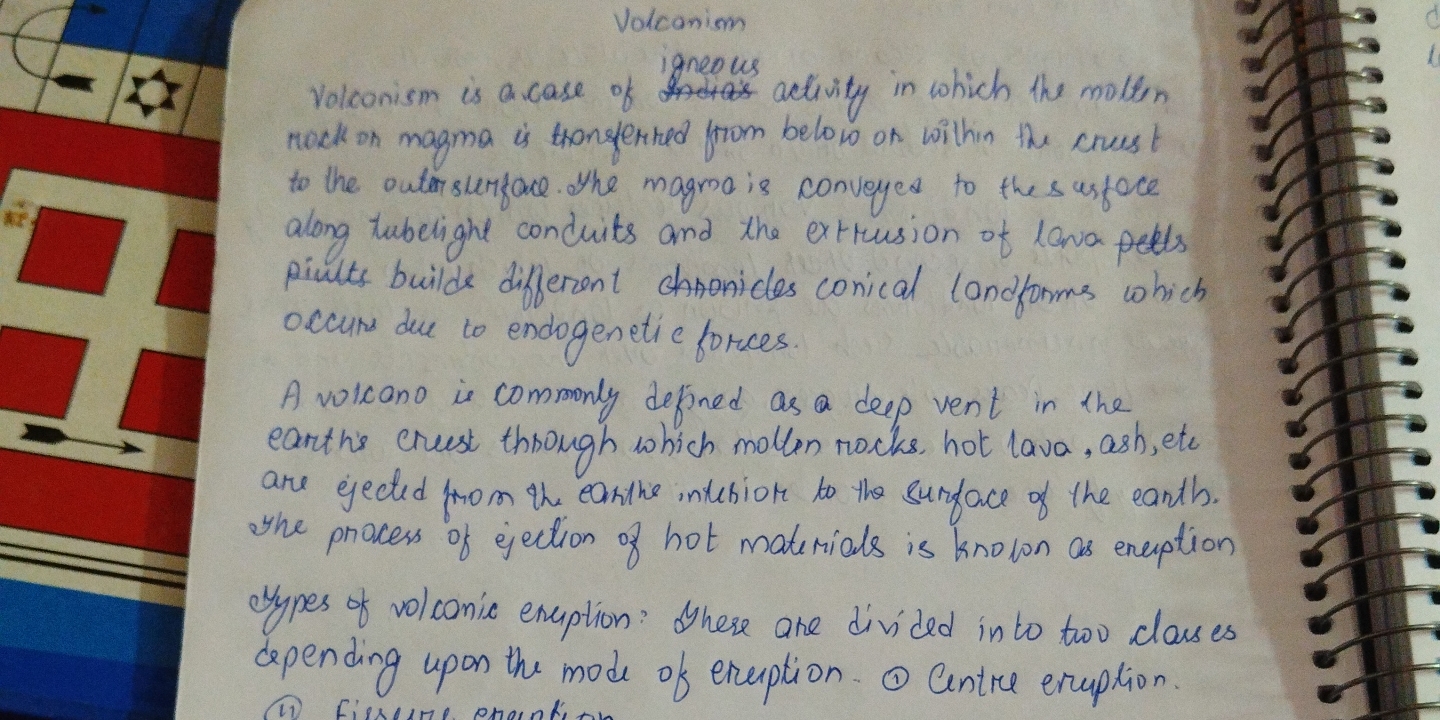 Volcanism
igneous
Volcanism is a case of India's activity in which the molten
rock or magma is transferred from below or within the crust
to the outer surface. The magma is conveyed to the surface
along tubelight conduits and the extrusion of lava
builds different chronicles conical landforms which
occurs due to endogenetic forces.
A volcano is commonly defined as a deep vent in the
earth's crust through which molten rocks, hot lava, ash, etc
are ejected from the earth's interior to the surface of the earth.
The process of ejection of hot materials is known as eruption
Types of volcanic eruption: These are divided into two classes
depending upon the mode of eruption. (i) Centre eruption.
(ii) Fissure eruption